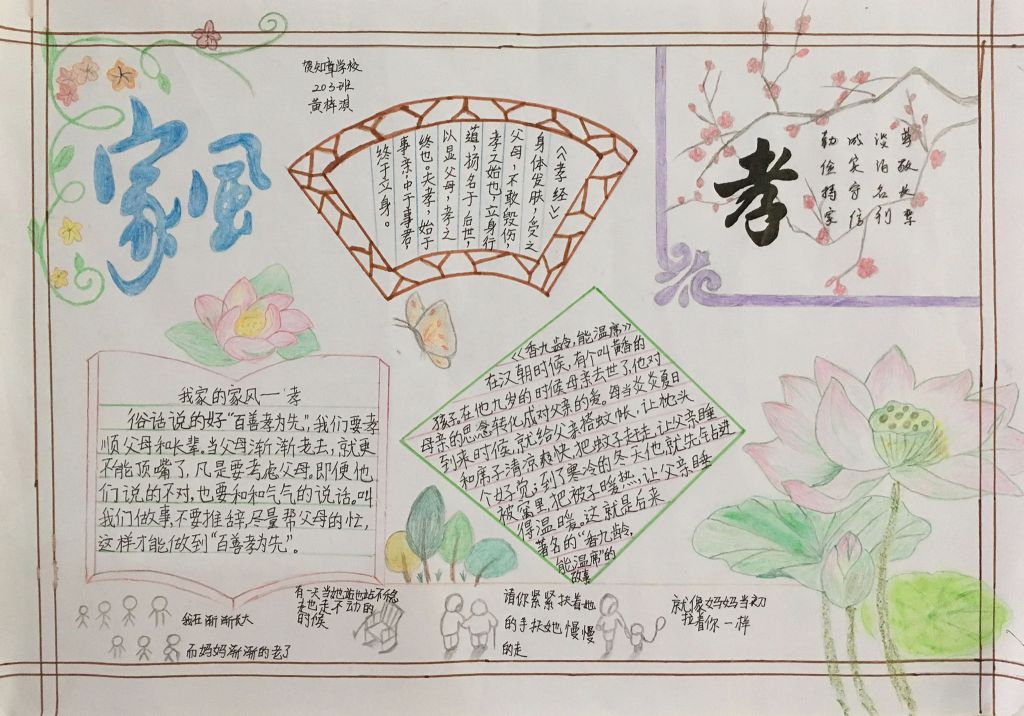 家风
贺知章学校
203班
黄梓淇
《孝经》
身体发肤,受之
父母,不敢毁伤,
孝之始也,立身行
道,扬名于后世,
以显父母,孝之
终也夫孝,始于
事亲,中于事君,
终于立身。
孝
尊敬长辈
淡泊名利
诚实守信
勤俭持家
我家的家风一孝
俗话说的好“百善孝为先”,我们要孝
顺父母和长辈。当父母渐渐老去,就更
不能顶嘴了,凡是要考虑父母,即使他
们说的不对,也要和和气气的说话。叫
我们做事,不要推辞,尽量帮父母的忙,
这样才能做到“百善孝为先”。
《香九龄,能温席》
在汉朝时候,有个叫黄香的
孩子。在他九岁的时候母亲去世了,他对
母亲的思念转化成对父亲的爱。每当炎炎夏日
到来时候,就给父亲搭蚊帐,让枕头
和席子清凉爽快,把蚊子赶走,让父亲睡
个好觉;到了寒冷的冬天他就先钻进
被窝里,把被子暖热,让父亲睡
得温暖。这就是后来
著名的“香九龄,
能温席”的
故事
渐渐长大
而妈妈渐渐的老了
有一天当她站也站不稳
走也走不动的
的时候
请你紧紧扶着她
的手扶她慢慢
的走
就像妈妈当初
拉着你一样